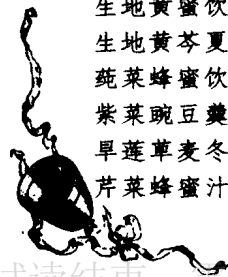 生地黄蜜饮
生地黄芩夏
莼菜蜂蜜饮
紫菜豌豆羹
旱莲草麦冬
芹菜蜂蜜汁
试读结束